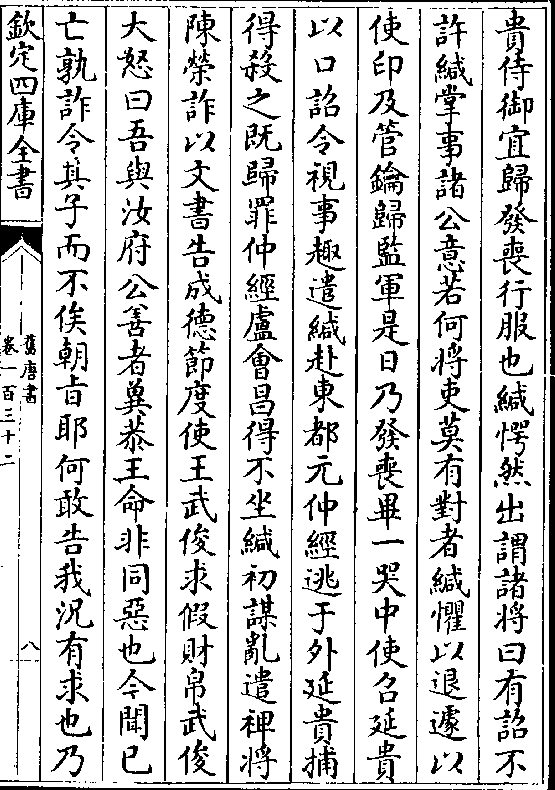 貴侍御宜歸發喪行服也緘愕然出謂諸將曰有詔不
許緘掌事諸公意若何將吏莫有對者緘懼以退遽以
使印及管鑰歸監軍是日乃發喪畢一哭中使召延貴
以口詔令視事趣遣緘赴東都元仲經逃于外延貴捕
得殺之既歸罪仲經盧會昌得不坐緘初謀亂遣裨將
陳榮詐以文書告成德節度使王武俊求假財帛武俊
大怒曰吾與汝府公善者冀恭王命非同惡也今聞已
亡孰詐令其子而不俟朝旨耶何敢告我況有求也乃
欽定四庫全書
舊唐書
卷一百三十二
八